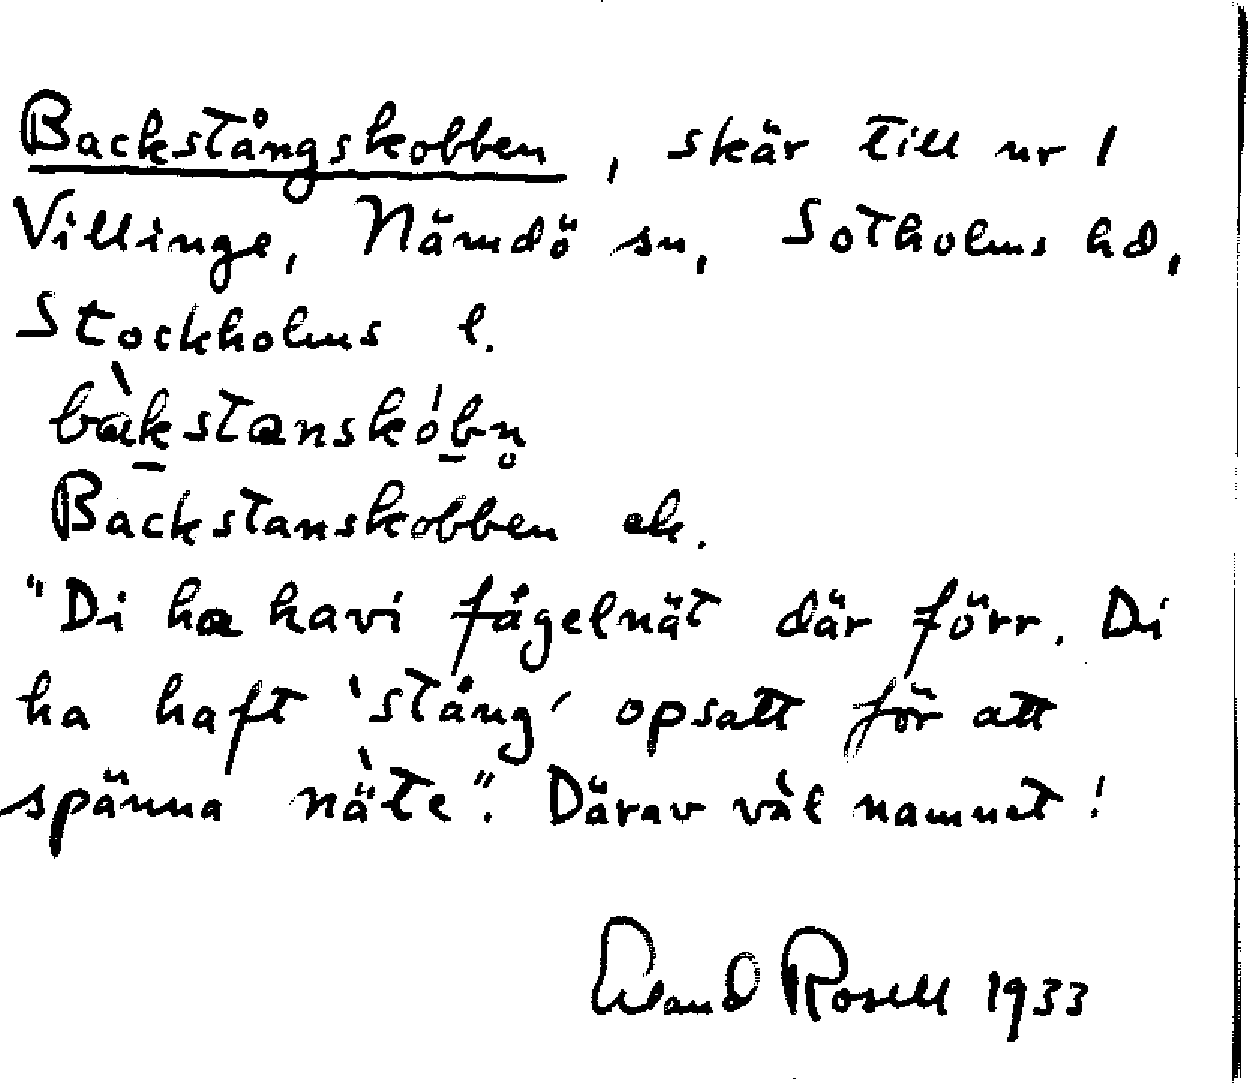 Backstångskobben, skär till nr 1
Villinge, Nämdö sn, Sotholms hd,
Stockholms l.
bàkstanskóbn̥
Backstanskobben ek.
"Di ha havi fågelnät där förr. Di
ha haft 'stång' opsatt för att
spänna nä̀te". Därav väl namnet!
Erland Rosell 1933